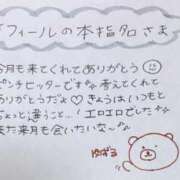 フィールの本指名さま
今月も来てくれてありがとう
ピンチヒッターです 考えてくれて
ありがとうだよ♡きょうはいつもと
ちょっと違うこと…!エロエロでした
また来月も会いたいな~
ゆずる